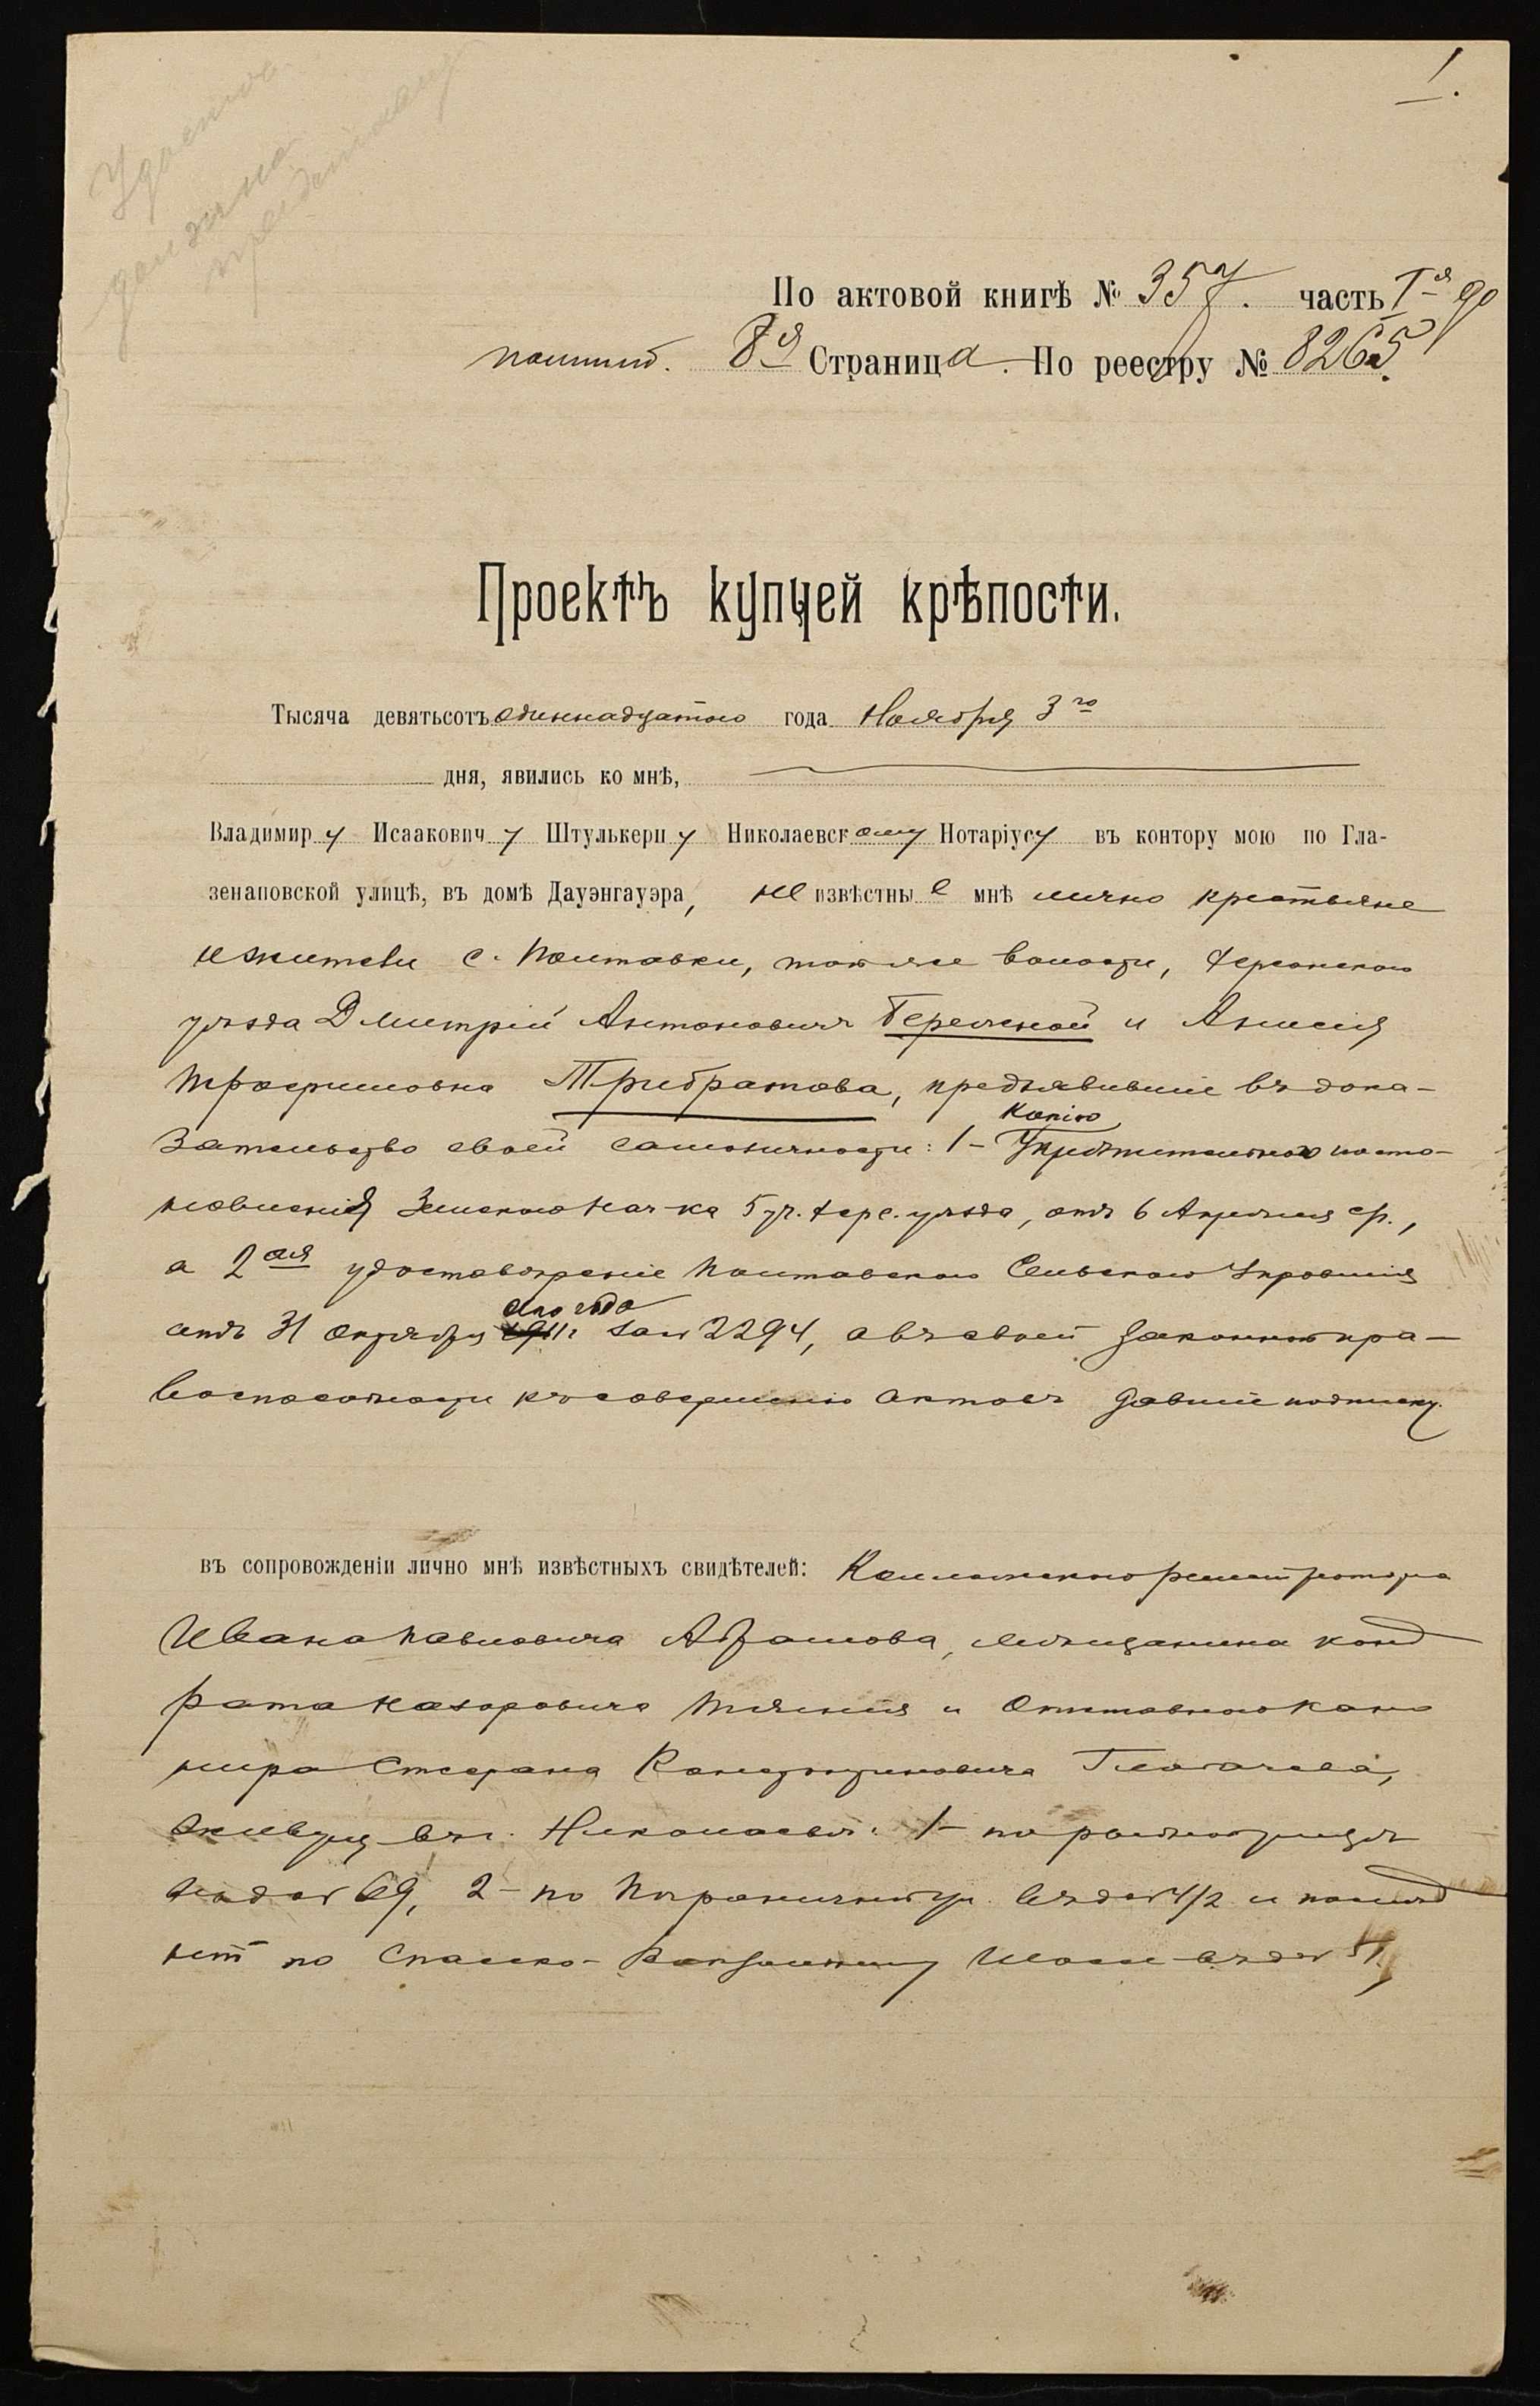 1.
Удаен
должна
По актовой книгѣ № 357. часть Iя до
полнит. 8я Страница. По реестру № 8265.
Проектъ купчей крѣпости.
Тысяча девятьсотъ одиннадцатого года Ноября 3го
дня, явились ко мнѣ,
Владимиру Исааковичу Штулькерцу Николаевскому Нотаріусу въ контору мою по Гла-
зенаповской улицѣ, въ домѣ Дауэнгауэра, не извѣстные мнѣ лично крестьяне
и жители с. Полтавки, той же волости, Херсонскаго
уѣзда Дмитрій Антоновичъ Бережной и Анисія
Трофимовна Трибратова, предъявившіе въ дока-
Копію
зательство своей самоличности: 1- Укрѣпительнаго поста-
новленія Земскаго Нач-ка 5 уч. Херс. уѣзда, отъ 6 Апрѣля с.г.,
а 2ая удостовѣреніе Полтавскаго Сельскаго Управленія
сего года
отъ 31 Октября 1911г за № 2294, а въ своей законной пра-
воспособности къ совершенію актовъ давшіе подписку.
въ сопровожденіи лично мнѣ извѣстныхъ свидѣтелей: Коллежскаго регистратора
Ивана Павловича Абрамова, мѣщанина Конд
рата Назаровича и Отставного Кано
нира Стефана Константиновича
живущ. въ г. Николаевѣ: 1- по
въ д. № 69, 2- по Пограничной ул. въ д. № 1/2 и послѣд
ній по Спасско- шоссе въ д. №